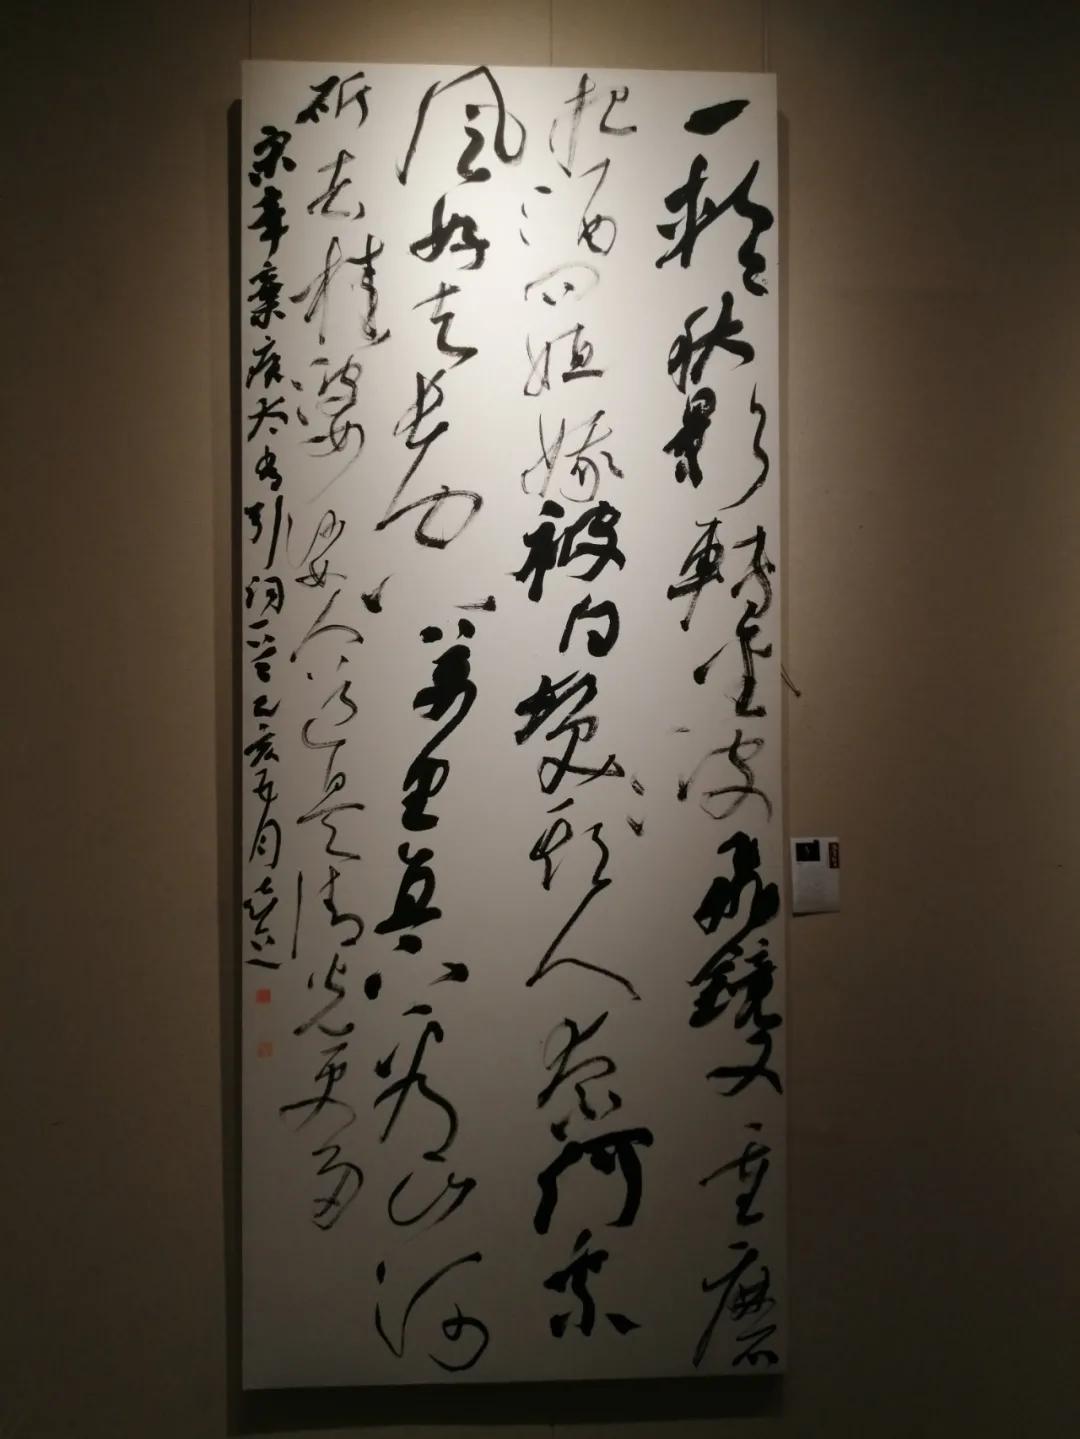 一輪秋影轉金波飛鏡又重磨
把酒問姮娥被白髮欺人奈何乘
風好去長空萬里直下看山河
斫去桂婆娑人道是清光更多
宋辛棄疾太常引詞一首己亥五月